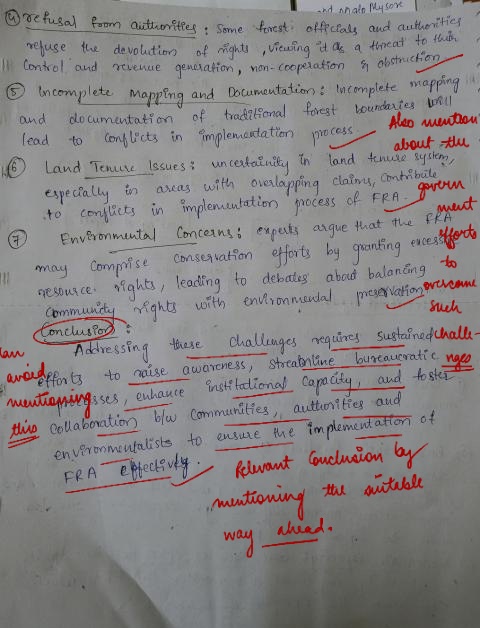 and Anglo Mysore
④ refusal from authorities : Some forest officials and authorities
refuse the devolution of rights, viewing it as a threat to their
control and revenue generation, non-cooperation & obstruction.
⑤ Incomplete Mapping and Documentation : Incomplete mapping
and documentation of traditional forest boundaries will
lead to conflicts in implementation process
Also mention
about the
government
efforts
to
overcome
such
challe-
nges
⑥ Land Tenure Issues : uncertainity in land tenure system,
especially in areas with overlapping claims, contribute
to conflicts in implementation process of FRA.
⑦ Environmental Concerns : experts argue that the FRA
may comprise conservation efforts by granting
resource rights, leading to debates about balancing
community rights with environmental preservation
Conclusion :
can
avoid
mentioning
this
Addressing these challenges requires sustained
efforts to raise awareness, streamline bureaucratic
processes, enhance institutional capacity, and foster
collaboration b/w communities, authorities and
environmentalists to ensure the implementation of
FRA effectively.
Relevant Conclusion by
mentioning the suitable
way ahead.